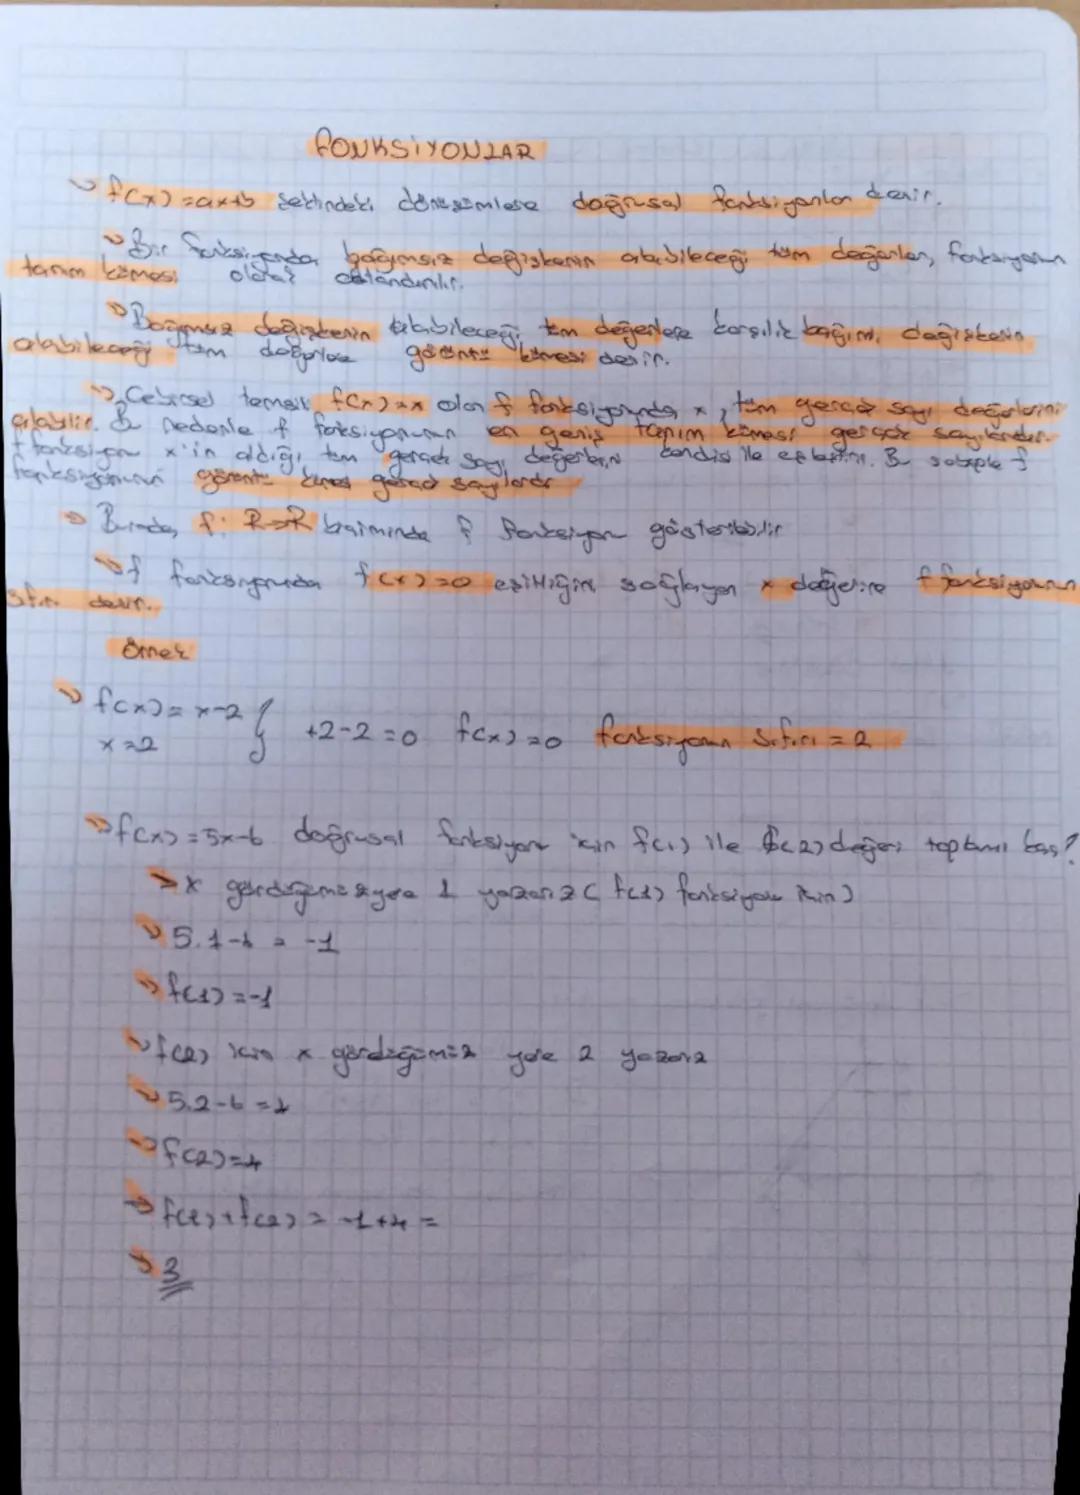 FONKSİYONLAR
f(x)=ax+b şeklindeki dönüşümlere doğrusal fonksiyonlar denir.
Bir fonksiyonda bağımsız değişkenin alabileceği tüm değerler, fonksiyonun
tanım kümesi olarak adlandırılır.
Bağımsız değişkenin alabileceği tüm değerlere karşılık bağımlı değişkenin
alabileceği tüm değerlere görüntü kümesi denir.
Cebirsel temsili f(x)=x olan f fonksiyonunda x, tüm gerçek sayı değerlerini
alabilir. Bu nedenle f foksiyonunun en geniş tanım kümesi gerçek sayılardır.
f fonksiyon x'in aldığı tüm gerçek sayı değerlerini kendisi ile eşleştirir. Bu sebeple f
fonksiyonunun görüntü kümesi gerçek sayılardır
Burada, f: R→R biçiminde f fonksiyon gösterilebilir
f fonksiyonunda f(x)=0 eşitliğini sağlayan x değerine f fonksiyonunun
sıfırı denir.
Örnek
f(x)= x-2 } +2-2=0 f(x)=0 fonksiyonun sıfırı = 2
x=2
f(x)=5x-6 doğrusal fonksiyon için f(1) ile f(2) değeri toplamı kaç?
x gördüğümüz yere 1 yazarız ( f(1) fonksiyonu için)
5.1-6 = -1
f(1)=-1
f(2) için x gördüğümüz yere 2 yazarız
5.2-6=4
f(2)=4
f(1)+f(2) = -1+4 =
3